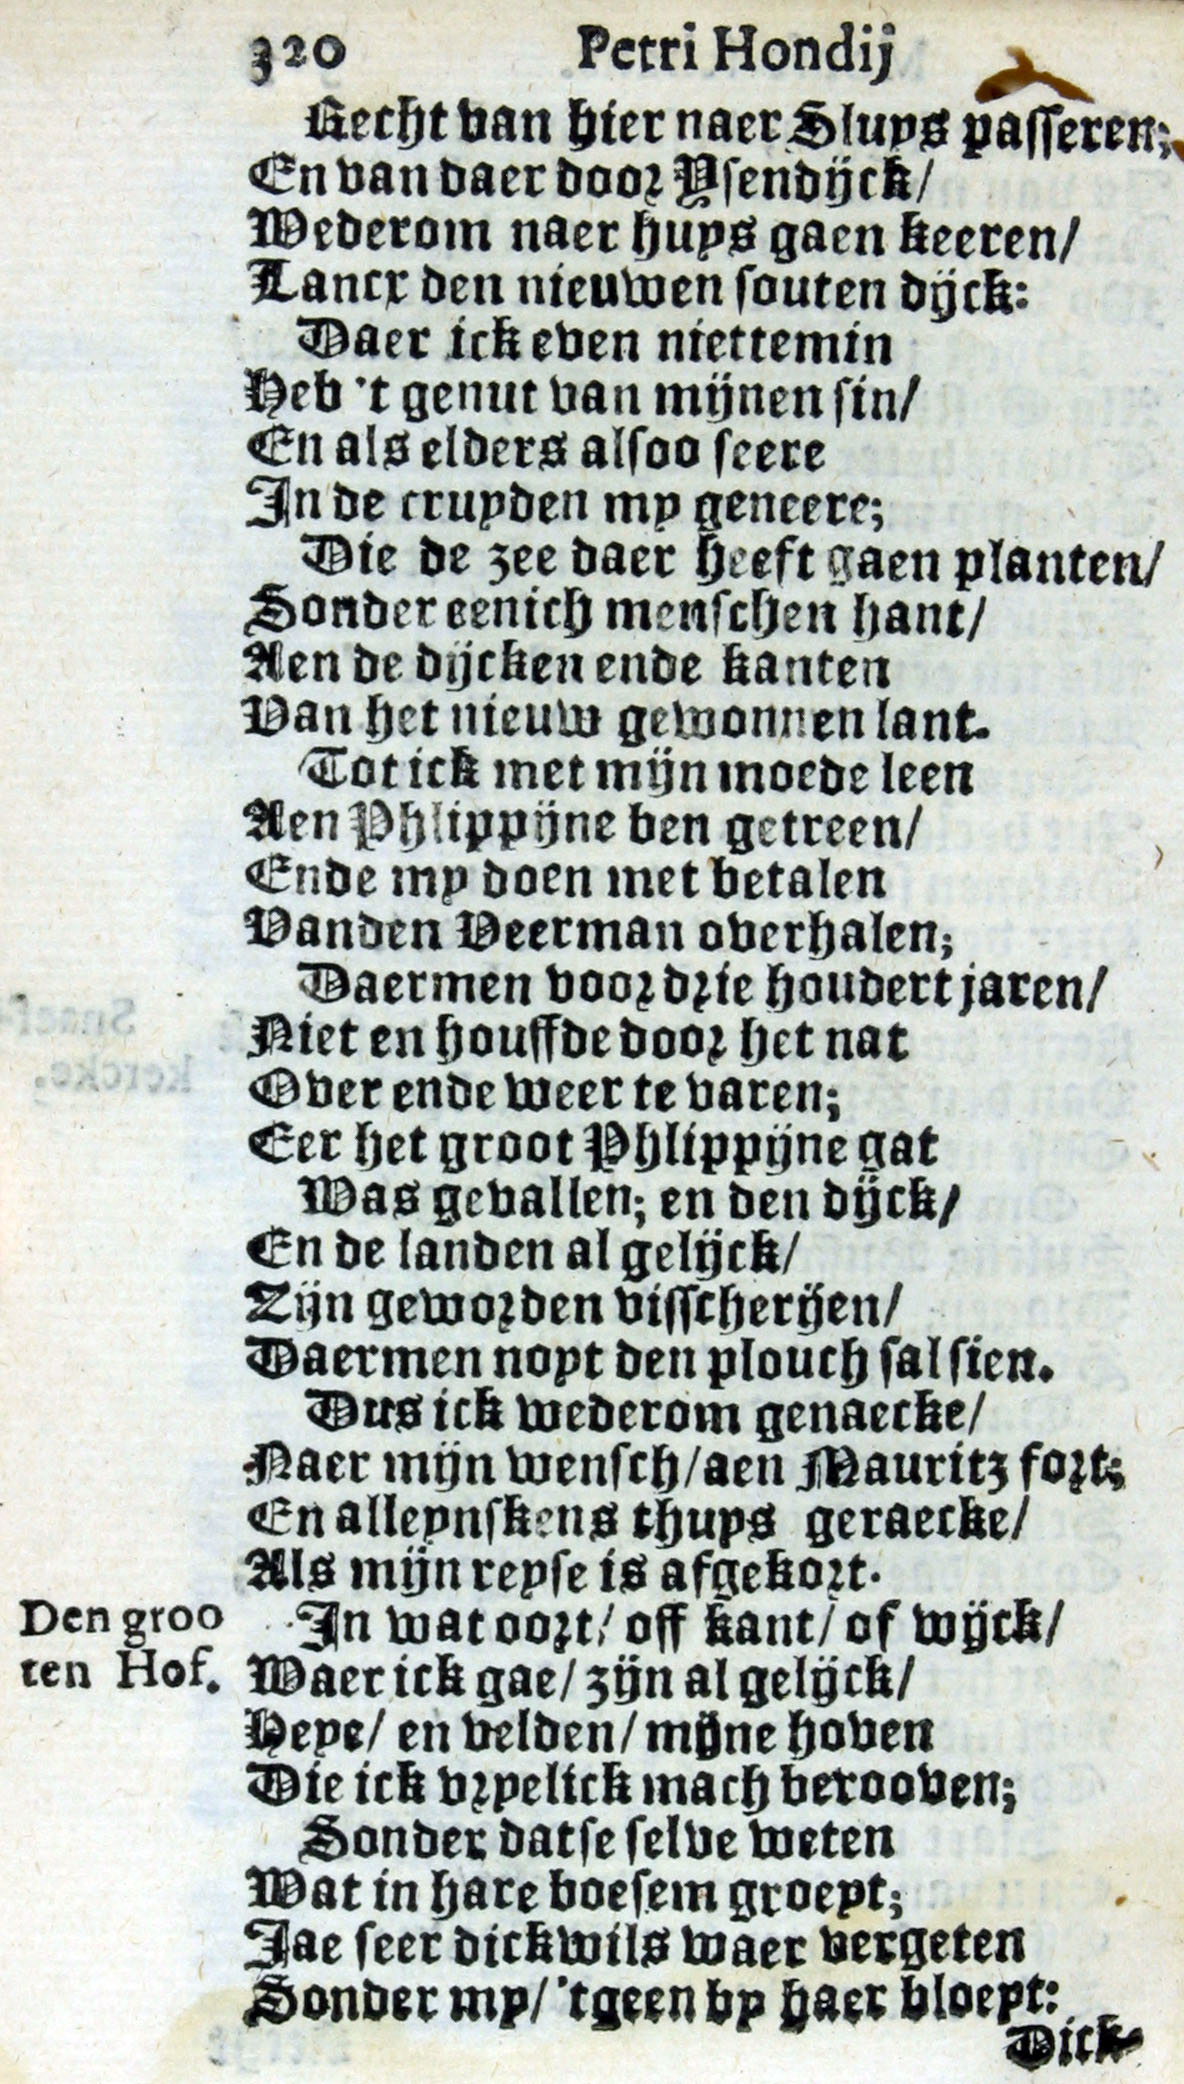 320 Petri Hondij
Recht van hier naer Sluys passeren;
En van daer door Ysendijck/
Wederom naer huys gaen keeren/
Lancx den nieuwen souten dijck:
Daer ick even niettemin
Heb 't genut van mijnen sin/
En als elders alsoo seere
In de cruyden my geneere;
Die de zee daer heeft gaen planten/
Sonder eenich menschen hant/
Aen de dijcken ende kanten
Van het nieuw gewonnen lant.
Tot ick met mijn moede leen
Aen Phlippijne ben getreen/
Ende my doen met betalen
Vanden Veerman overhalen;
Daermen voor drie houdert jaren/
Niet en houffde door het nat
Over ende weer te varen;
Eer het groot Phlippijne gat
Was gevallen; en den dijck/
En de landen al gelijck/
Zijn geworden visscherijen/
Daermen noyt den plouch sal sien.
Dus ick wederom genaecke/
Naer mijn wensch/ aen Mauritz fort;
En alleynskens thuys geraecke/
Als mijn reyse is afgekort.
Den groo
ten Hof.
In wat oort/ off kant/ of wijck/
Waer ick gae/ zijn al gelijck/
Heye/ en velden/ mijne hoven
Die ick vryelick mach berooven;
Sonder datse selve weten
Wat in hare boesem groeyt;
Jae seer dickwils waer vergeten
Sonder my/ 'tgeen by haer bloeyt:
Dick-